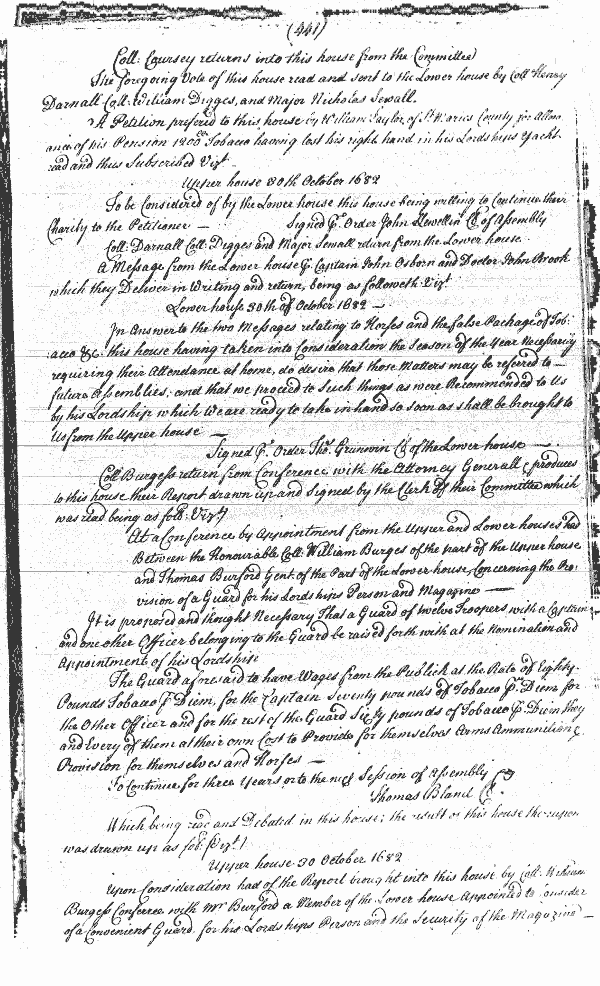 (441)
Coll: Coursey returns into this house from the Committee
The foregoing Vote of this house read and sent to the Lower house by Coll Henry
Darnall Coll: William Digges, and Major Nicholas Sewall.
A Petition prefered to this house by William Taylor of St Maries County for Allow
ance of his Pension 1200 Tobacco having lost his right hand in his Lordships Yacht
read and thus Subscribed Vizt
Upper house 30th October 1682
To be Considered of by the Lower house this house being willing to Continue their
Charity to the Petitioner — Signed p. Order John Llewellin Cl. of Assembly
Coll: Darnall Coll: Digges and Major Sewall return from the Lower house
A Message from the Lower house p. Captain John Osborn and Doctor John Brook
which they Deliver in Writing and return, being as followeth Vizt
Lower house 30th of October 1682 —
In Answer to the two Messages relating to Horses and the false Package of Tob:
acco &c. this house having taken into Consideration the Season of the Year Necessarily
requiring their Attendance at home, do desire that those Matters may be referred to —
future Assemblies, and that we proceed to Such things as were Recommended to Us
by his Lordship which We are ready to take in hand so soon as shall be brought to
Us from the Upper house —
Signed p. Order Tho. Grunwin Cl of the Lower house —
Coll Burgess return from Conference with the Attorney Generall & produces
to this house their Report drawn up and Signed by the Clerk of their Committee which
was read being as foll: Vizt
At a Conference by Appointment from the Upper and Lower houses had
Between the Honourable Coll: William Burges of the part of the Upper house
and Thomas Burford Gent. of the Part of the Lower house Concerning the Pro:
vision of a Guard for his Lordships Person and Magazine —
It is proposed and thought Necessary That a Guard of twelve Troopers with a Captain
and one other Officer belonging to the Guard be raised forth with at the Nomination and
Appointment of his Lordship
The Guard aforesaid to have Wages from the Publick at the Rate of Eighty
Pounds Tobacco p. Diem, for the Captain Seventy pounds of Tobacco p. Diem for
the Other Officer and for the rest of the Guard Sixty pounds of Tobacco p. Diem they
and every of them at their own Cost to Provide for themselves Arms Ammunition &
Provision for themselves and Horses —
To Continue for three Years or to the next Session of Assembly
Thomas Bland Cl
Which being read and Debated in this house; the result of this house thereupon
was drawn up as foll: Vizt
Upper house 30 October 1682
Upon Consideration had of the Report brought into this house by Coll: William
Burgess Conferree with Mr Burford a Member of the Lower house Appointed to Consider
of a Convenient Guard for his Lordships Person and the Security of the Magazine —